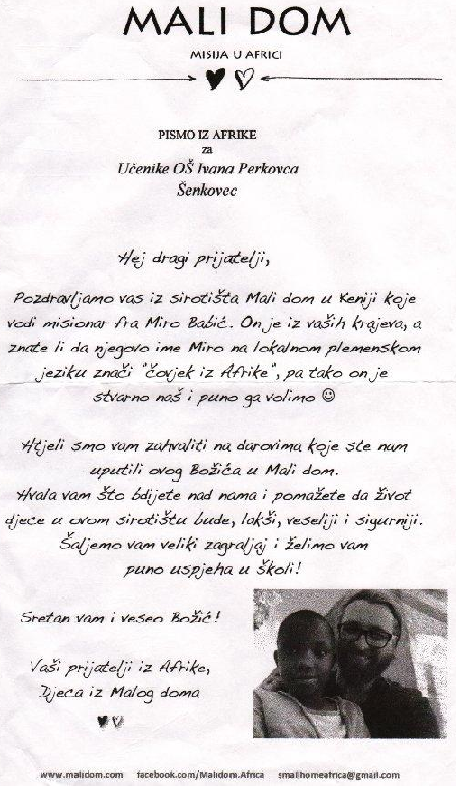 MALI DOM
MISIJA U AFRICI
PISMO IZ AFRIKE
za
Učenike OŠ Ivana Perkovca
Šenkovec
Hej dragi prijatelji,
Pozdravljamo vas iz sirotišta Mali dom u Keniji koje
vodi misionar fra Miro Babić. On je iz vaših krajeva, a
znate li da njegovo ime Miro na lokalnom plemenskom
jeziku znači "čovjek iz Afrike", pa tako on je
stvarno naš i puno ga volimo ☺
Htjeli smo vam zahvaliti na darovima koje ste nam
uputili ovog Božića u Mali dom.
Hvala vam što bdijete nad nama i pomažete da život
djece u ovom sirotištu bude, lakši, veseliji i sigurniji.
Šaljemo vam veliki zagraljaj i želimo vam
puno uspjeha u školi!
Sretan vam i veseo Božić!
Vaši prijatelji iz Afrike,
Djeca iz Malog doma
www.malidom.com facebook.com/Malidom.Africa smallhomeafrica@gmail.com